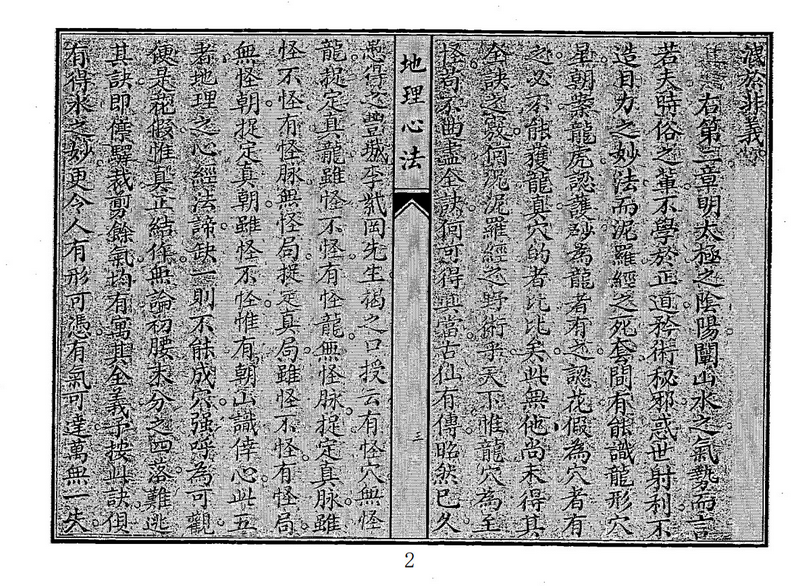 右第三章明太極之陰陽闡山水之氣勢而言
若夫時俗之輩不學於正道矜術秘邪惑世射利不
造目力之妙法而泥羅經之死套間有能識龍形穴
星朝案龍虎認護砂為龍者有之認花假為穴者有
之必不能獲龍真穴的者比比矣此無他尚未得其
全訣之故何況泥羅經之野術乎天下惟龍穴為至
怪苟不曲盡全訣何可得與當古仙有傳昭然已久
地理心法
三
愚得之豐城李戕岡先生褐之口授云有怪穴無怪
龍捉定真龍雖怪不怪有怪龍無怪脉捉定真脉雖
怪不怪有怪脉無怪局捉定真局雖怪不怪有怪局
無怪朝捉定真朝雖怪不怪惟有朝山識倖心此五
者地理之心經法諦缺一則不能成穴强呼為可觀
便是花假惟真正結作無論初腰末分之四落難逃
其訣即停驛裁剪餘氣均有寓其全義予按此訣俱
有得水之妙更令人有形可憑有氣可達萬無一失
2